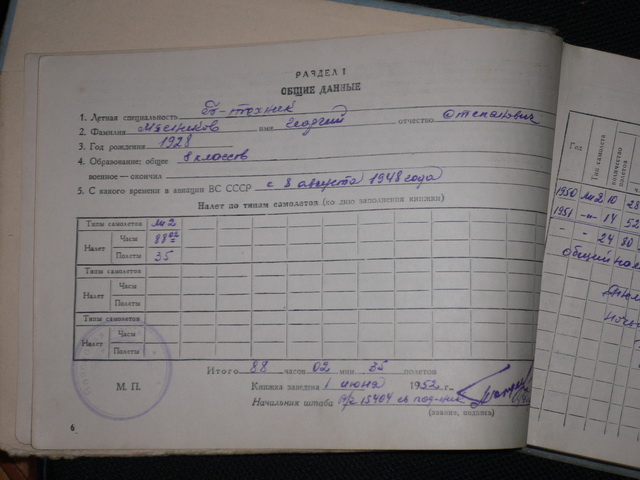 РАЗДЕЛ I
ОБЩИЕ ДАННЫЕ
1. Летная специальность Б-техник
2. Фамилия Мясников имя Георгий отчество Степанович
3. Год рождения 1928
4. Образование: общее 8 классов
военное — окончил
5. С какого времени в авиации ВС СССР с 8 августа 1948 года
Налет по типам самолетов (ко дню заполнения книжки)
Типы самолетов
Налет Часы 88 02
Полеты 35
Типы самолетов
Налет Часы
Полеты
Типы самолетов
Налет Часы
Полеты
Итого 88 часов 02 мин 35 полетов
М. П.
Книжка заведена 1 июня 1952 г.
Начальник штаба в/ч 15404
(звание, подпись)
6
Год
Тип самолета
количество полетов
1950 10 28
1951 -"- 14 52
- - 24 80
Общий